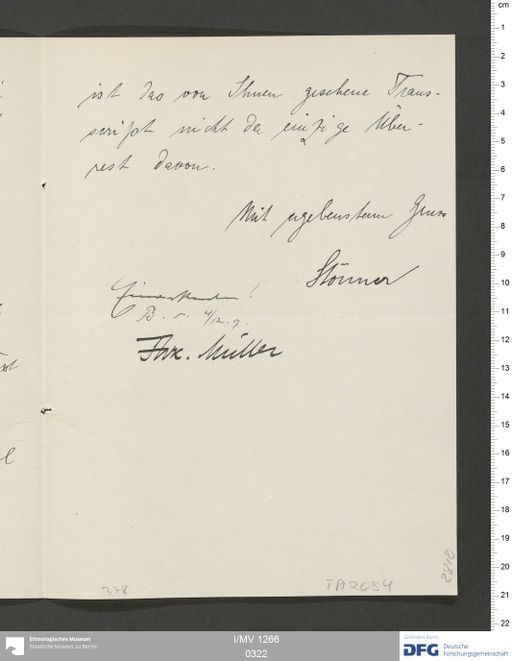 ist das von Ihnen gesehene Trans-
script nicht der einzige Über-
rest davon.
Mit ergebenstem Gruss
Stönner
Einverstanden!
4/12. 7.
F.W.K. Müller
378
TA2054
2810
cm
1
2
3
4
5
6
7
8
9
10
11
12
13
14
15
16
17
18
19
20
21
22
Ethnologisches Museum
Staatliche Museen zu Berlin
I/MV 1266
0322
Gefördert durch
DFG Deutsche
Forschungsgemeinschaft